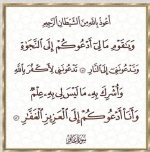 أعوذ بالله من الشيطان الرجيم
وَيَٰقَوْمِ مَا لِيٓ أَدْعُوكُمْ إِلَى ٱلنَّجَوٰةِ
وَتَدْعُونَنِيٓ إِلَى ٱلنَّارِ تَدْعُونَنِي لِأَكْفُرَ بِٱللَّهِ
وَأُشْرِكَ بِهِۦ مَا لَيْسَ لِي بِهِۦ عِلْمٌ
وَأَنَا۠ أَدْعُوكُمْ إِلَى ٱلْعَزِيزِ ٱلْغَفَّٰرِ